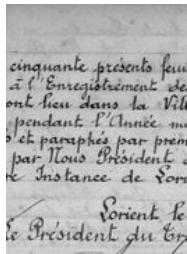 cinquante présents feui
à l'Enregistrement de
ont lieu dans la Vill
pendant l'Année m
s et paraphés par prem
par Nous Président
re Instance de Lor
Lorient le
Le Président du Tr